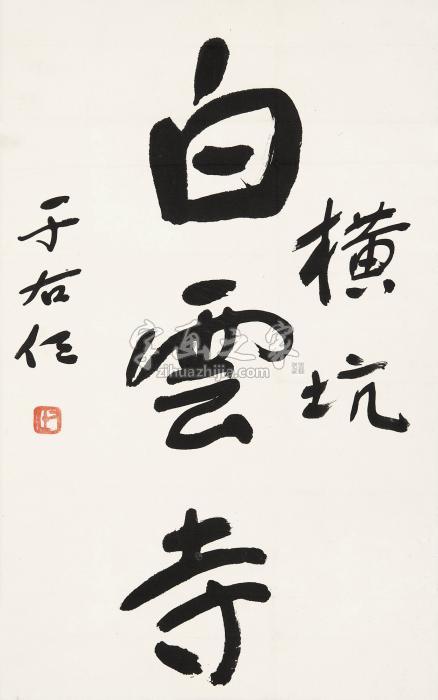 橫坑
白雲寺
于右任
字画之家
zihuazhijia.com